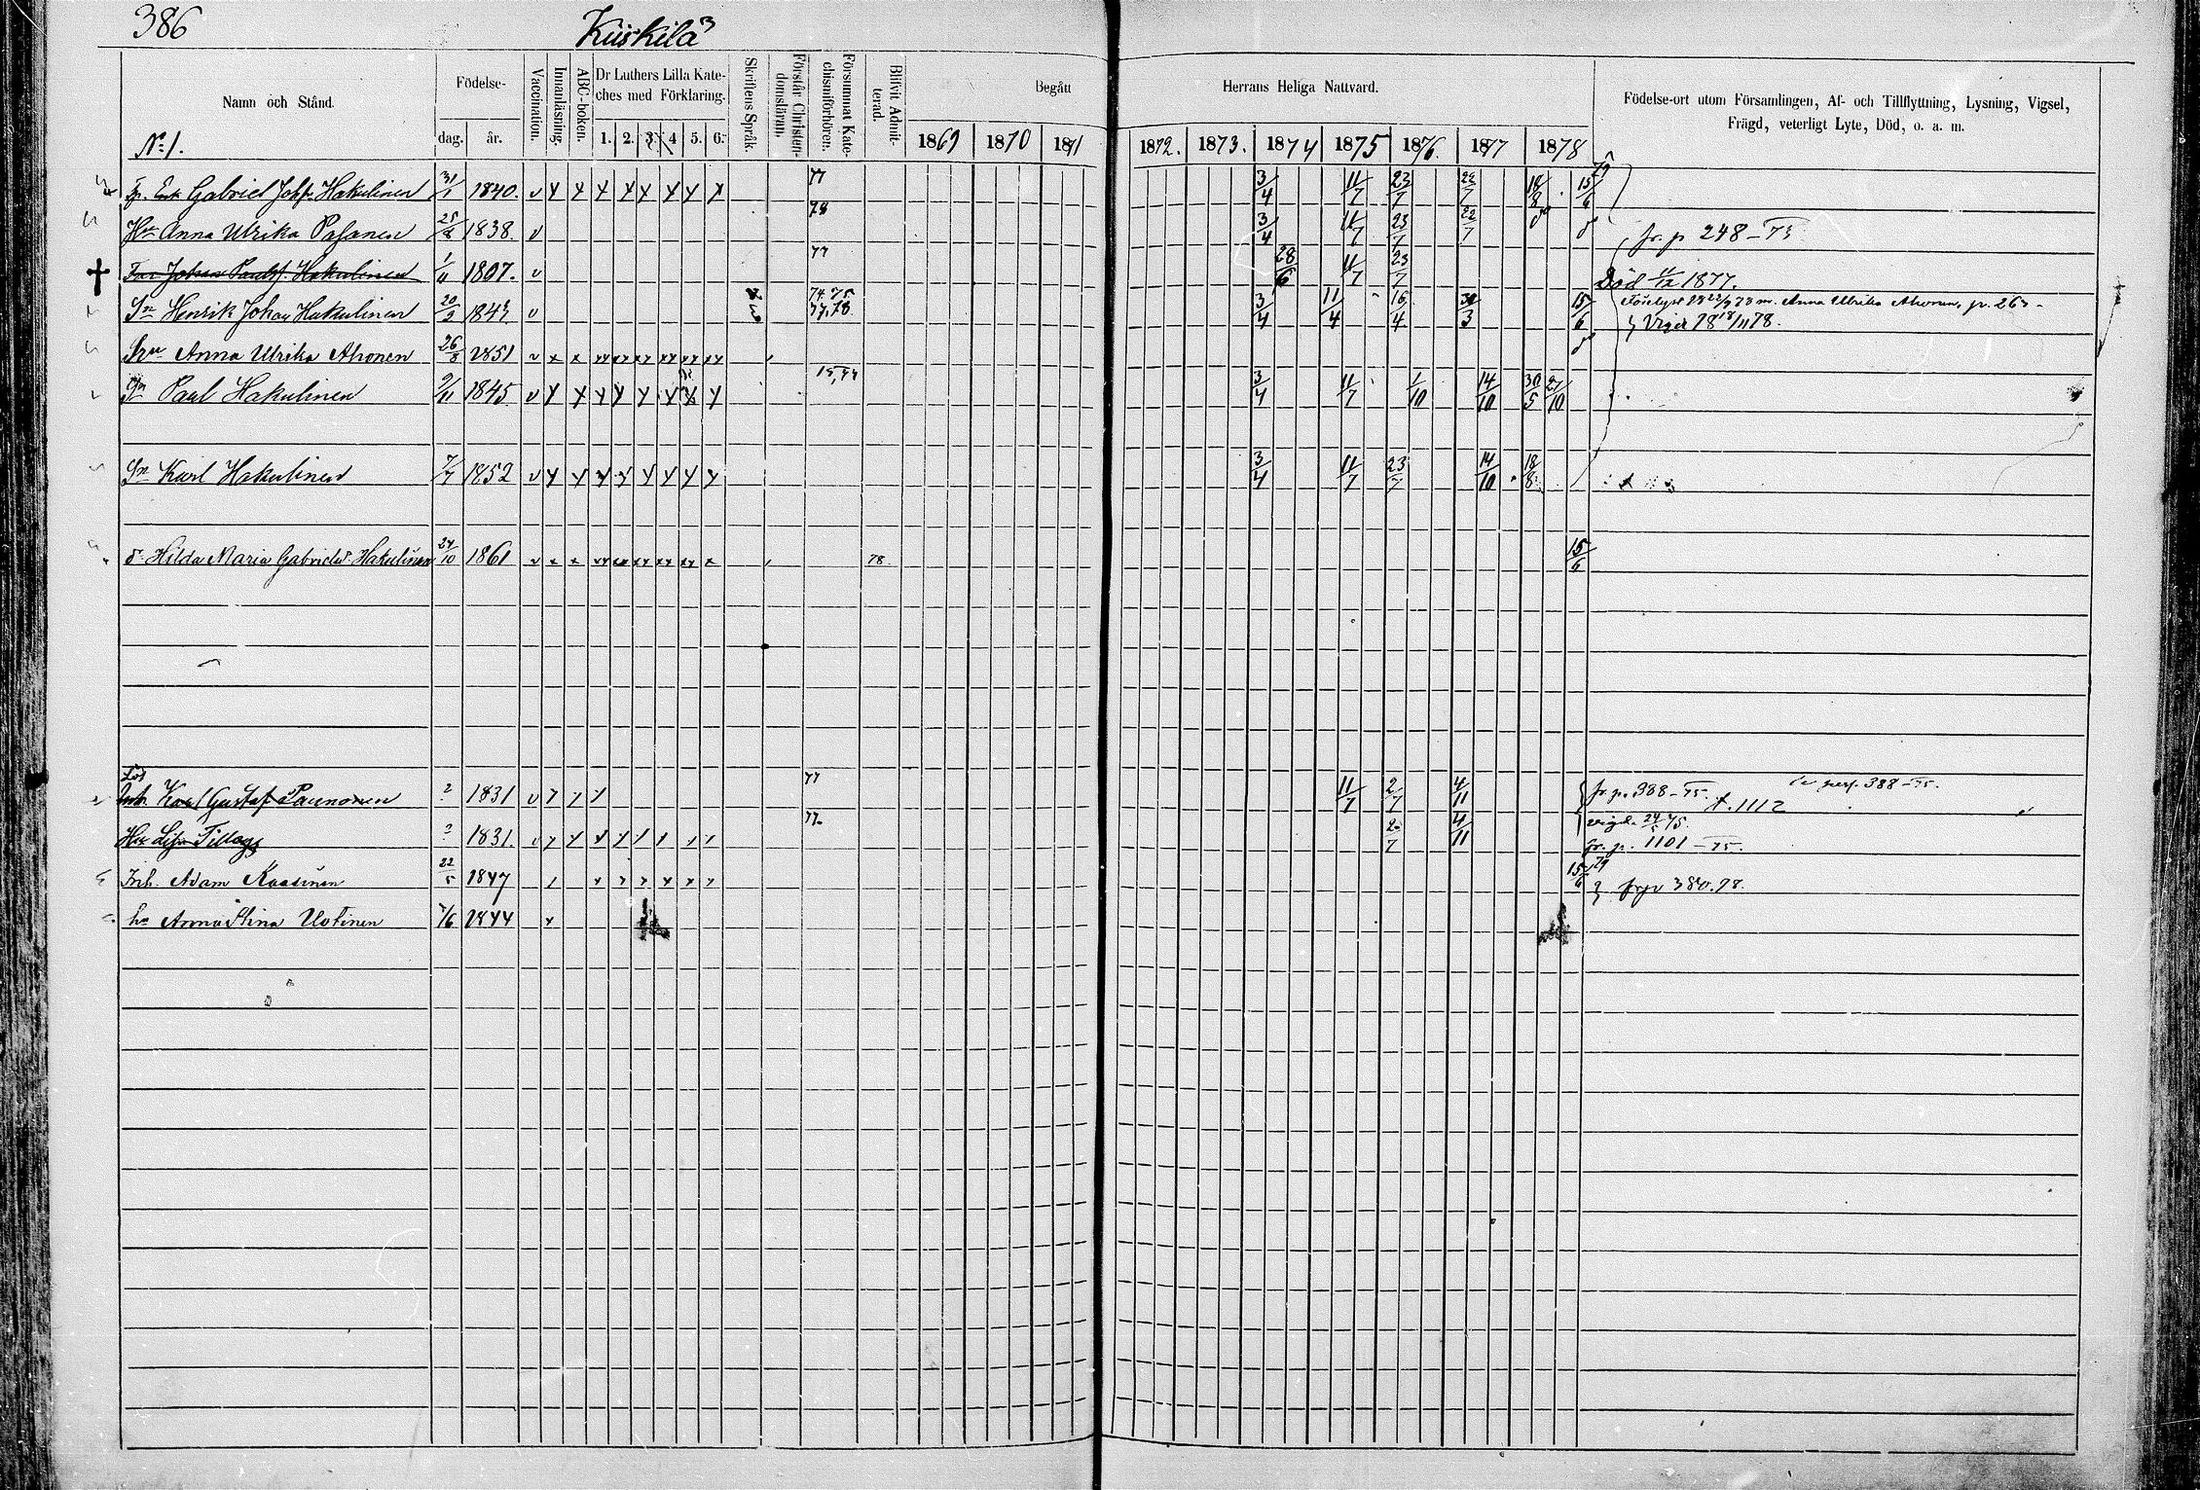 386
Kiiskilä
Namn och Stånd.
Födelse-
dag. år.
Vaccination.
Innanläsning.
ABC-boken.
Dr Luthers Lilla Kate-
ches med Förklaring.
1. 2. 3. 4. 5. 6.
Skriftens Språk.
Förstår Christen-
domsläran.
Försummat Kate-
chismiförhören.
Blifvit Admit-
terad.
Begått Herrans Heliga Nattvard.
1869 1870 1871 1872. 1873. 1874 1875 1876. 1877 1878 79
Födelse-ort utom Församlingen, Af- och Tillflyttning, Lysning, Vigsel,
Frägd, veterligt Lyte, Död, o. a. m.
No 1.
Gabriel Johss Hakulinen 31/1 1840. v x x x x x x x x 77 3/4 11/7 23/7 22/7 18/8 15/6
Hu Anna Ulrika Pasanen 25/8 1838. v 78 3/4 11/7 23/7 22/7 fr. p 248 – 75
Far Johan Paulss. Hakulinen 1/11 1807. v 77 28/6 11/7 23/7 Död 11/12 1877.
Sn Henrik Johan Hakulinen 20/3 1843. v 74. 75 77, 78. 3/4 11/4 16/4 30/3 15/6 m. Anna Ulrika Ahonen, p. 263 –
Vigd 18 18/11 78.
Anna Ulrika Ahonen 26/8 1851 v x x x x x x x x
Sn Paul Hakulinen 9/11 1845 v x x x x x x x x 3/4 11/7 1/10 14/10 30/5 27/10
Sn Karl Hakulinen 7/7 1852 v x x x x x x x x 3/4 11/7 23/7 14/10 18/8
d. Hilda Maria Gabrielsd. Hakulinen 24/10 1861 v x x x x x x x x 78. 15/6
Karl Gustaf Paunonen ? 1831 v x x x 77 11/7 2/7 4/11 fr. p. 388 – 75. t. 1112
388 – 75.
Hu Lisa Tillags ? 1831. v x x x x x x x x 77. 2/7 4/11 vigd. 24/5 75.
fr. p. 1101 – 75.
Inh. Adam Kaasinen 22/5 1847 x x x x x x x 15/6 79 fr p 380. 78.
hu Anna Stina Uotinen 1/6 1844 x